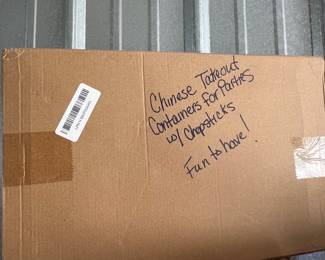 Chinese Takeout
Containers for Parties
w/ Chopsticks
Fun to have!